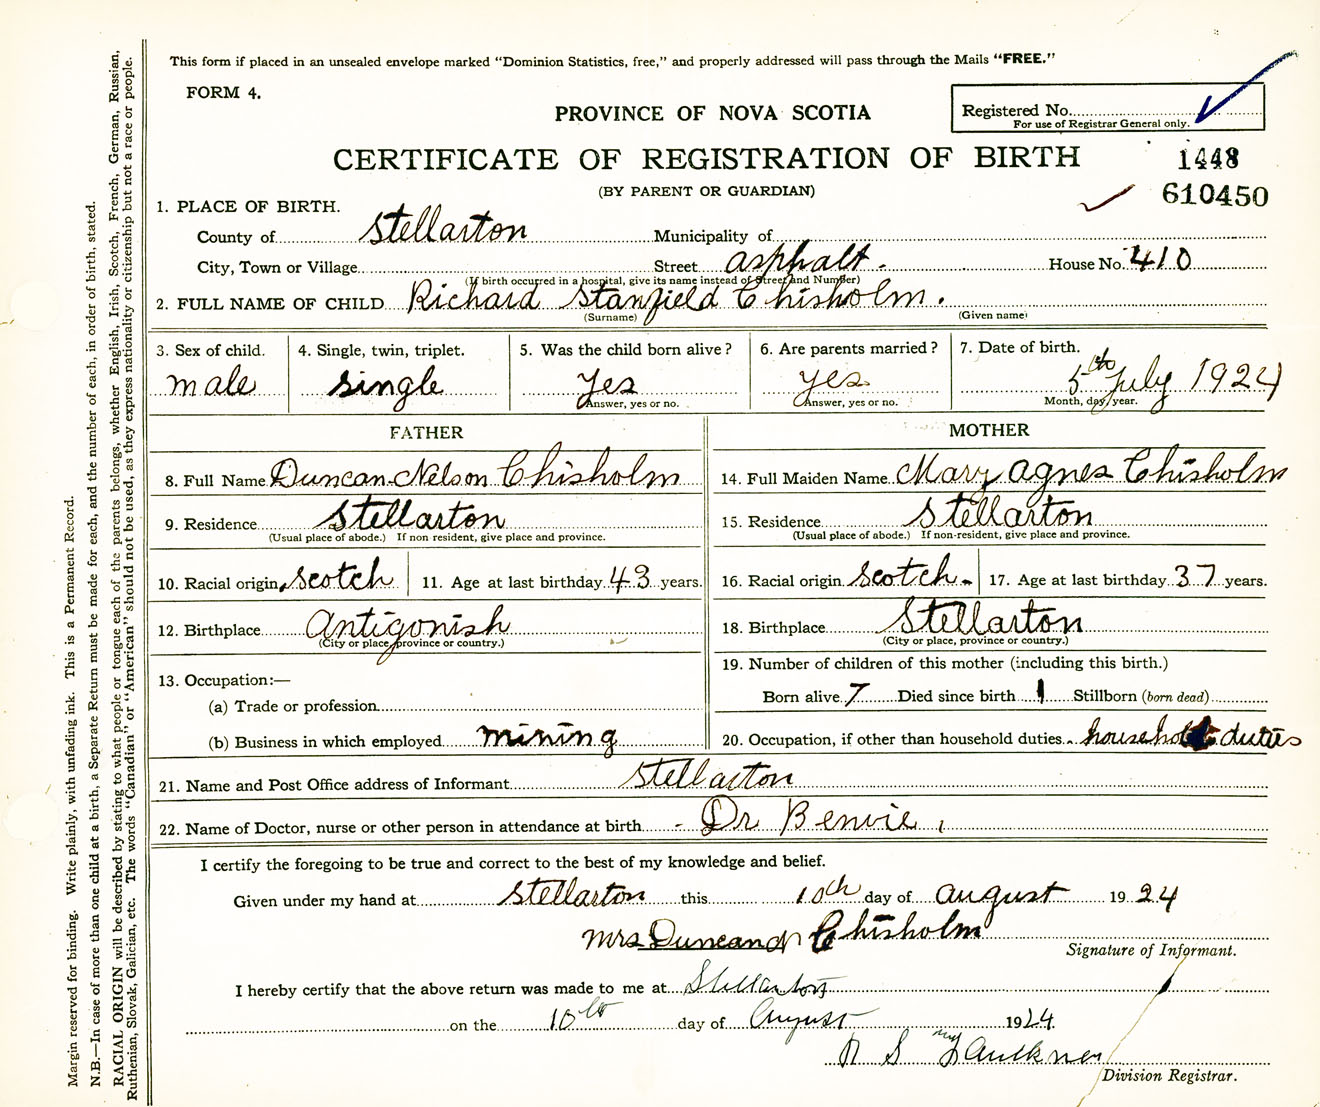 This form if placed in an unsealed envelope marked “Dominion Statistics, free,” and properly addressed will pass through the Mails “FREE.”
FORM 4.
PROVINCE OF NOVA SCOTIA
Registered No.
For use of Registrar General only.
CERTIFICATE OF REGISTRATION OF BIRTH
1448
(BY PARENT OR GUARDIAN)
610450
1. PLACE OF BIRTH.
County of Stellarton Municipality of
City, Town or Village Street asphalt. House No. 410
(If birth occurred in a hospital, give its name instead of Street and Number)
2. FULL NAME OF CHILD Richard Stanfield Chisholm.
(Surname) (Given name)
3. Sex of child. 4. Single, twin, triplet. 5. Was the child born alive? 6. Are parents married? 7. Date of birth.
male single Yes yes 5th July 1924
Answer, yes or no. Answer, yes or no. Month, day, year.
FATHER MOTHER
8. Full Name Duncan Nelson Chisholm 14. Full Maiden Name Mary Agnes Chisholm
9. Residence Stellarton 15. Residence Stellarton
(Usual place of abode.) If non-resident, give place and province. (Usual place of abode.) If non-resident, give place and province.
10. Racial origin scotch 11. Age at last birthday 43 years. 16. Racial origin scotch 17. Age at last birthday 37 years.
12. Birthplace Antigonish 18. Birthplace Stellarton
(City or place, province or country.) (City or place, province or country.)
19. Number of children of this mother (including this birth.)
13. Occupation:—
Born alive 7 Died since birth 1 Stillborn (born dead)
(a) Trade or profession
(b) Business in which employed mining 20. Occupation, if other than household duties household duties
21. Name and Post Office address of Informant Stellarton
22. Name of Doctor, nurse or other person in attendance at birth Dr Benvie
I certify the foregoing to be true and correct to the best of my knowledge and belief.
Given under my hand at Stellarton this 10th day of august 1924
Mrs Duncan Chisholm
Signature of Informant.
I hereby certify that the above return was made to me at Stellarton
on the 10th day of August 1924.
S Faulkner
Division Registrar.
Margin reserved for binding. Write plainly, with unfading ink. This is a Permanent Record.
N.B.—In case of more than one child at a birth, a Separate Return must be made for each, and the number of each, in order of birth, stated.
RACIAL ORIGIN will be described by stating to what people or tongue each of the parents belongs, whether English, Irish, Scotch, French, German, Russian,
Ruthenian, Slovak, Galician, etc. The words “Canadian” or “American” should not be used, as they express nationality or citizenship but not a race or people.